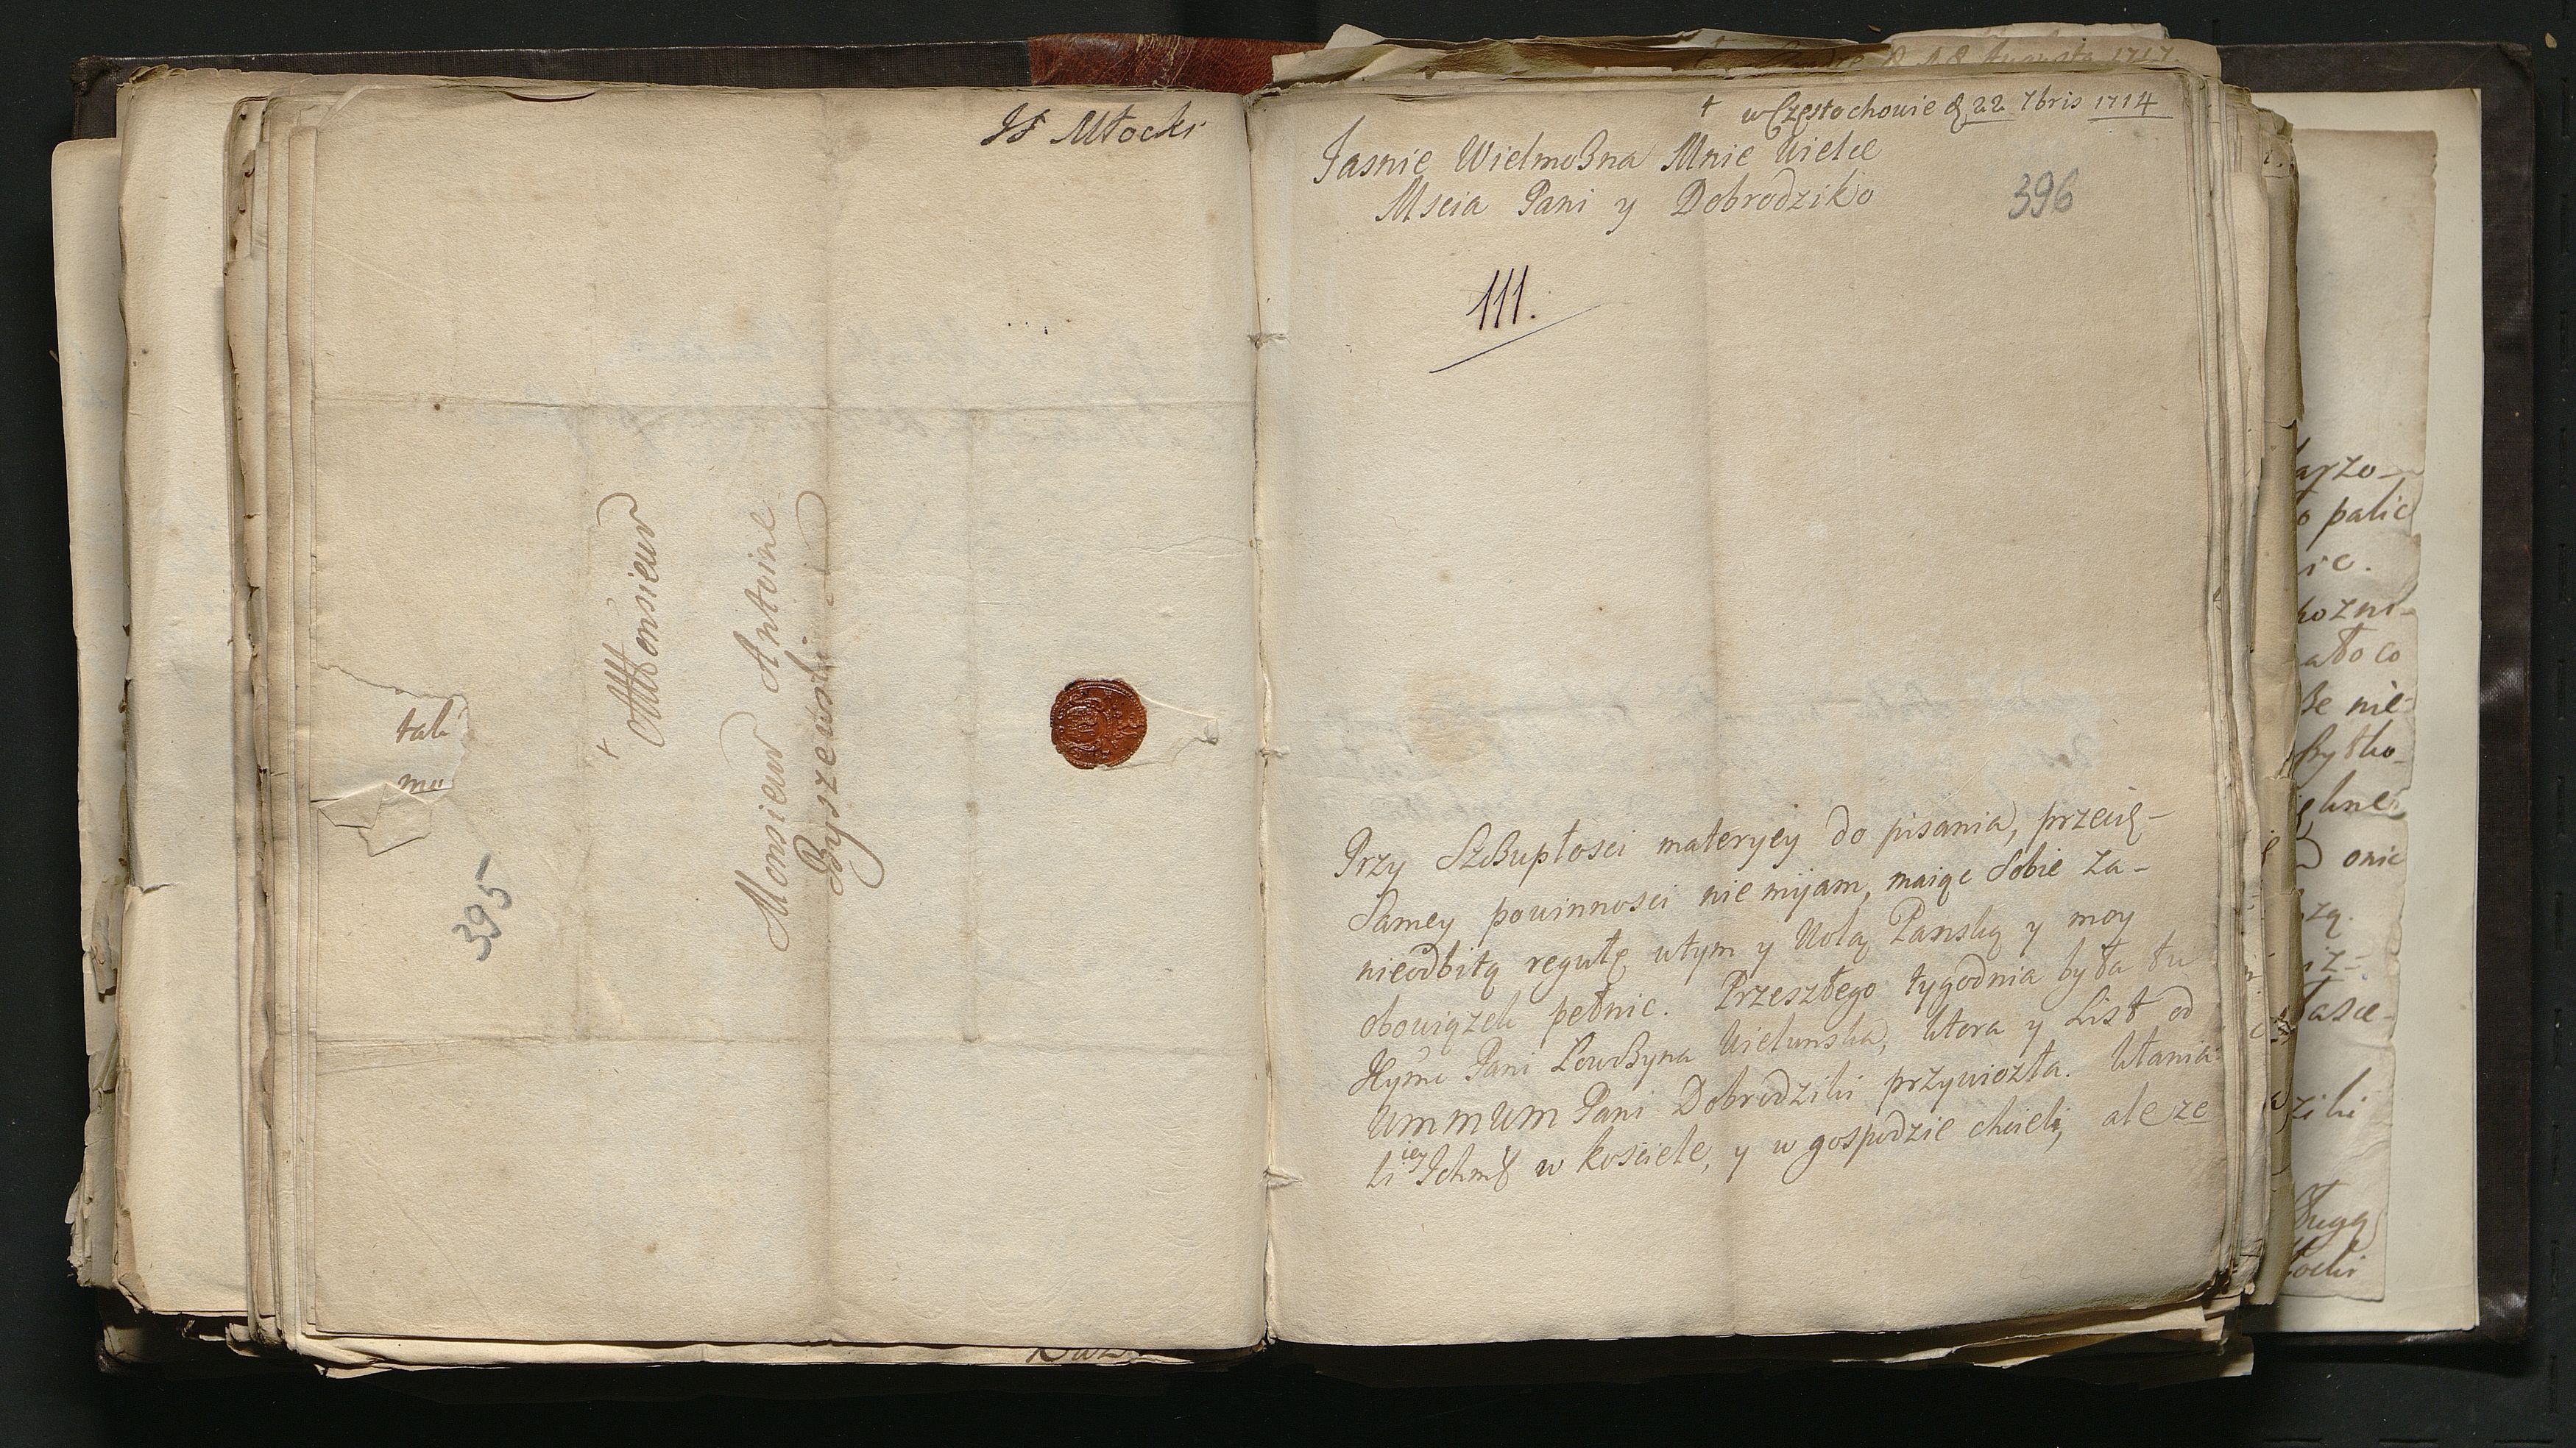 JP Młocki
tak
mu
395
+
Monsieur
Monsieur Antoine
Byszewski
+ w Częstochowie d 22 7bris 1714
Jasnie Wielmożna Mnie Wielce
Mscia Pani y Dobrodziko
396
111.
Przy Szczupłosci materyey do pisania, przecię-
Samey powinnosci nie mijam, maiąc Sobie za-
nieodbitą regułę wtym y Wolą Panską y moy
obowiązek pełnic. Przeszłego tygodnia była tu
Jeymć Pani Łowczyna Wielunska, ktora y List od
WMMWM Pani Dobrodziki przywiozła. Kłania-
li iey Ichmć w kosciele, y w gospodzie chcieli, ale ze
arzo-
o palic
ic.
ko
onic
ziki
ługą
łocki